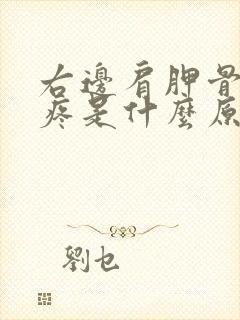 右邊肩胛骨
疼是什麼原
劉乜